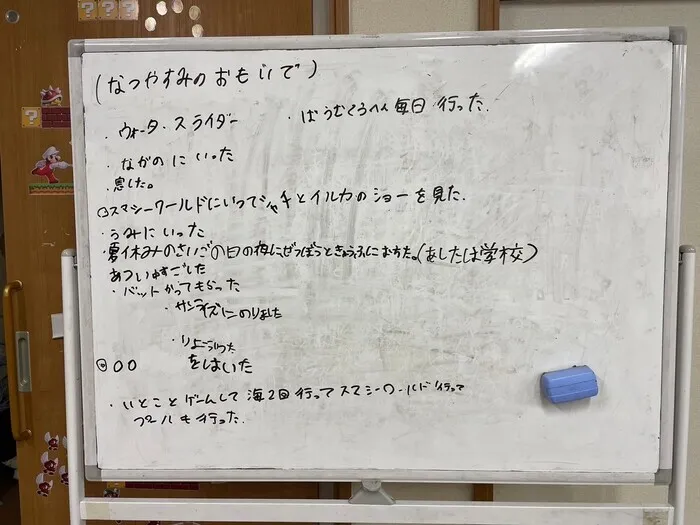 (なつやすみの おもいで)
・ウォータ・スライダー
・ばうむくうへん 毎日 行った.
・ながのに いった
・息した。
スマシーワールドにいってシャチとイルカのショーを見た.
・うみに いった
・夏休みのさいごの日の夜にぜつぼうときょうふにおちた。(あしたは学校)
・バットかってもらった
・サンライズにのりました
をはいた
○○
・いとことゲームして 海2回 行って スマシーワールド 行って
プールも行った.